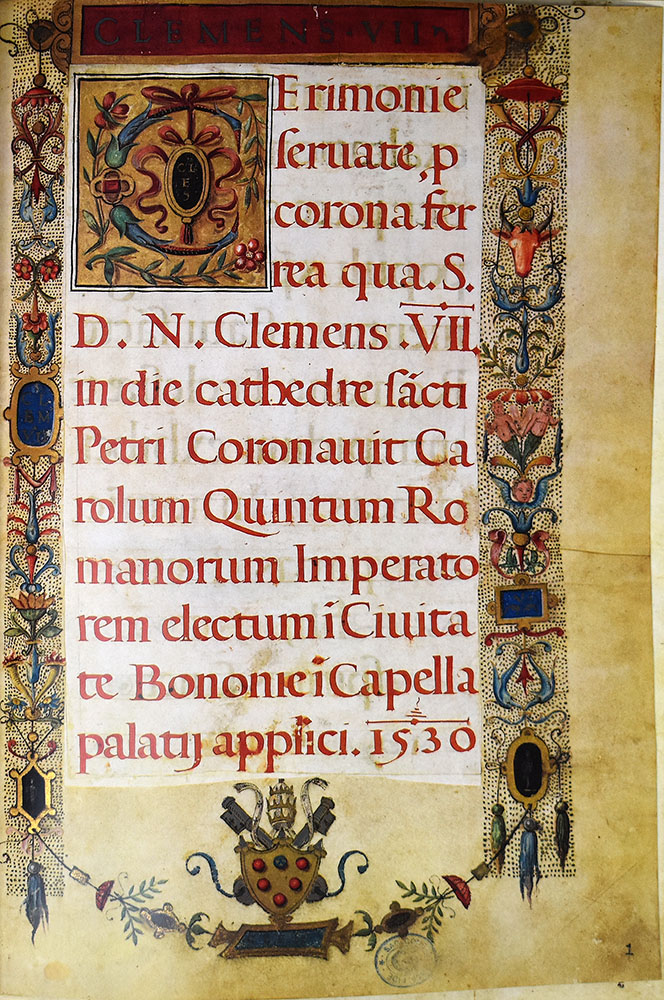 CLEMENS·VII
CErimonie
seruate, p
corona fer
rea qua. S.
D. N. Clemens .VII.
in die cathedre sãcti
Petri Coronauit Ca
rolum Quintum Ro
manorum Imperato
rem electum ĩ Ciuita
te Bononie ĩ Capella
palatij applici. 1530
1